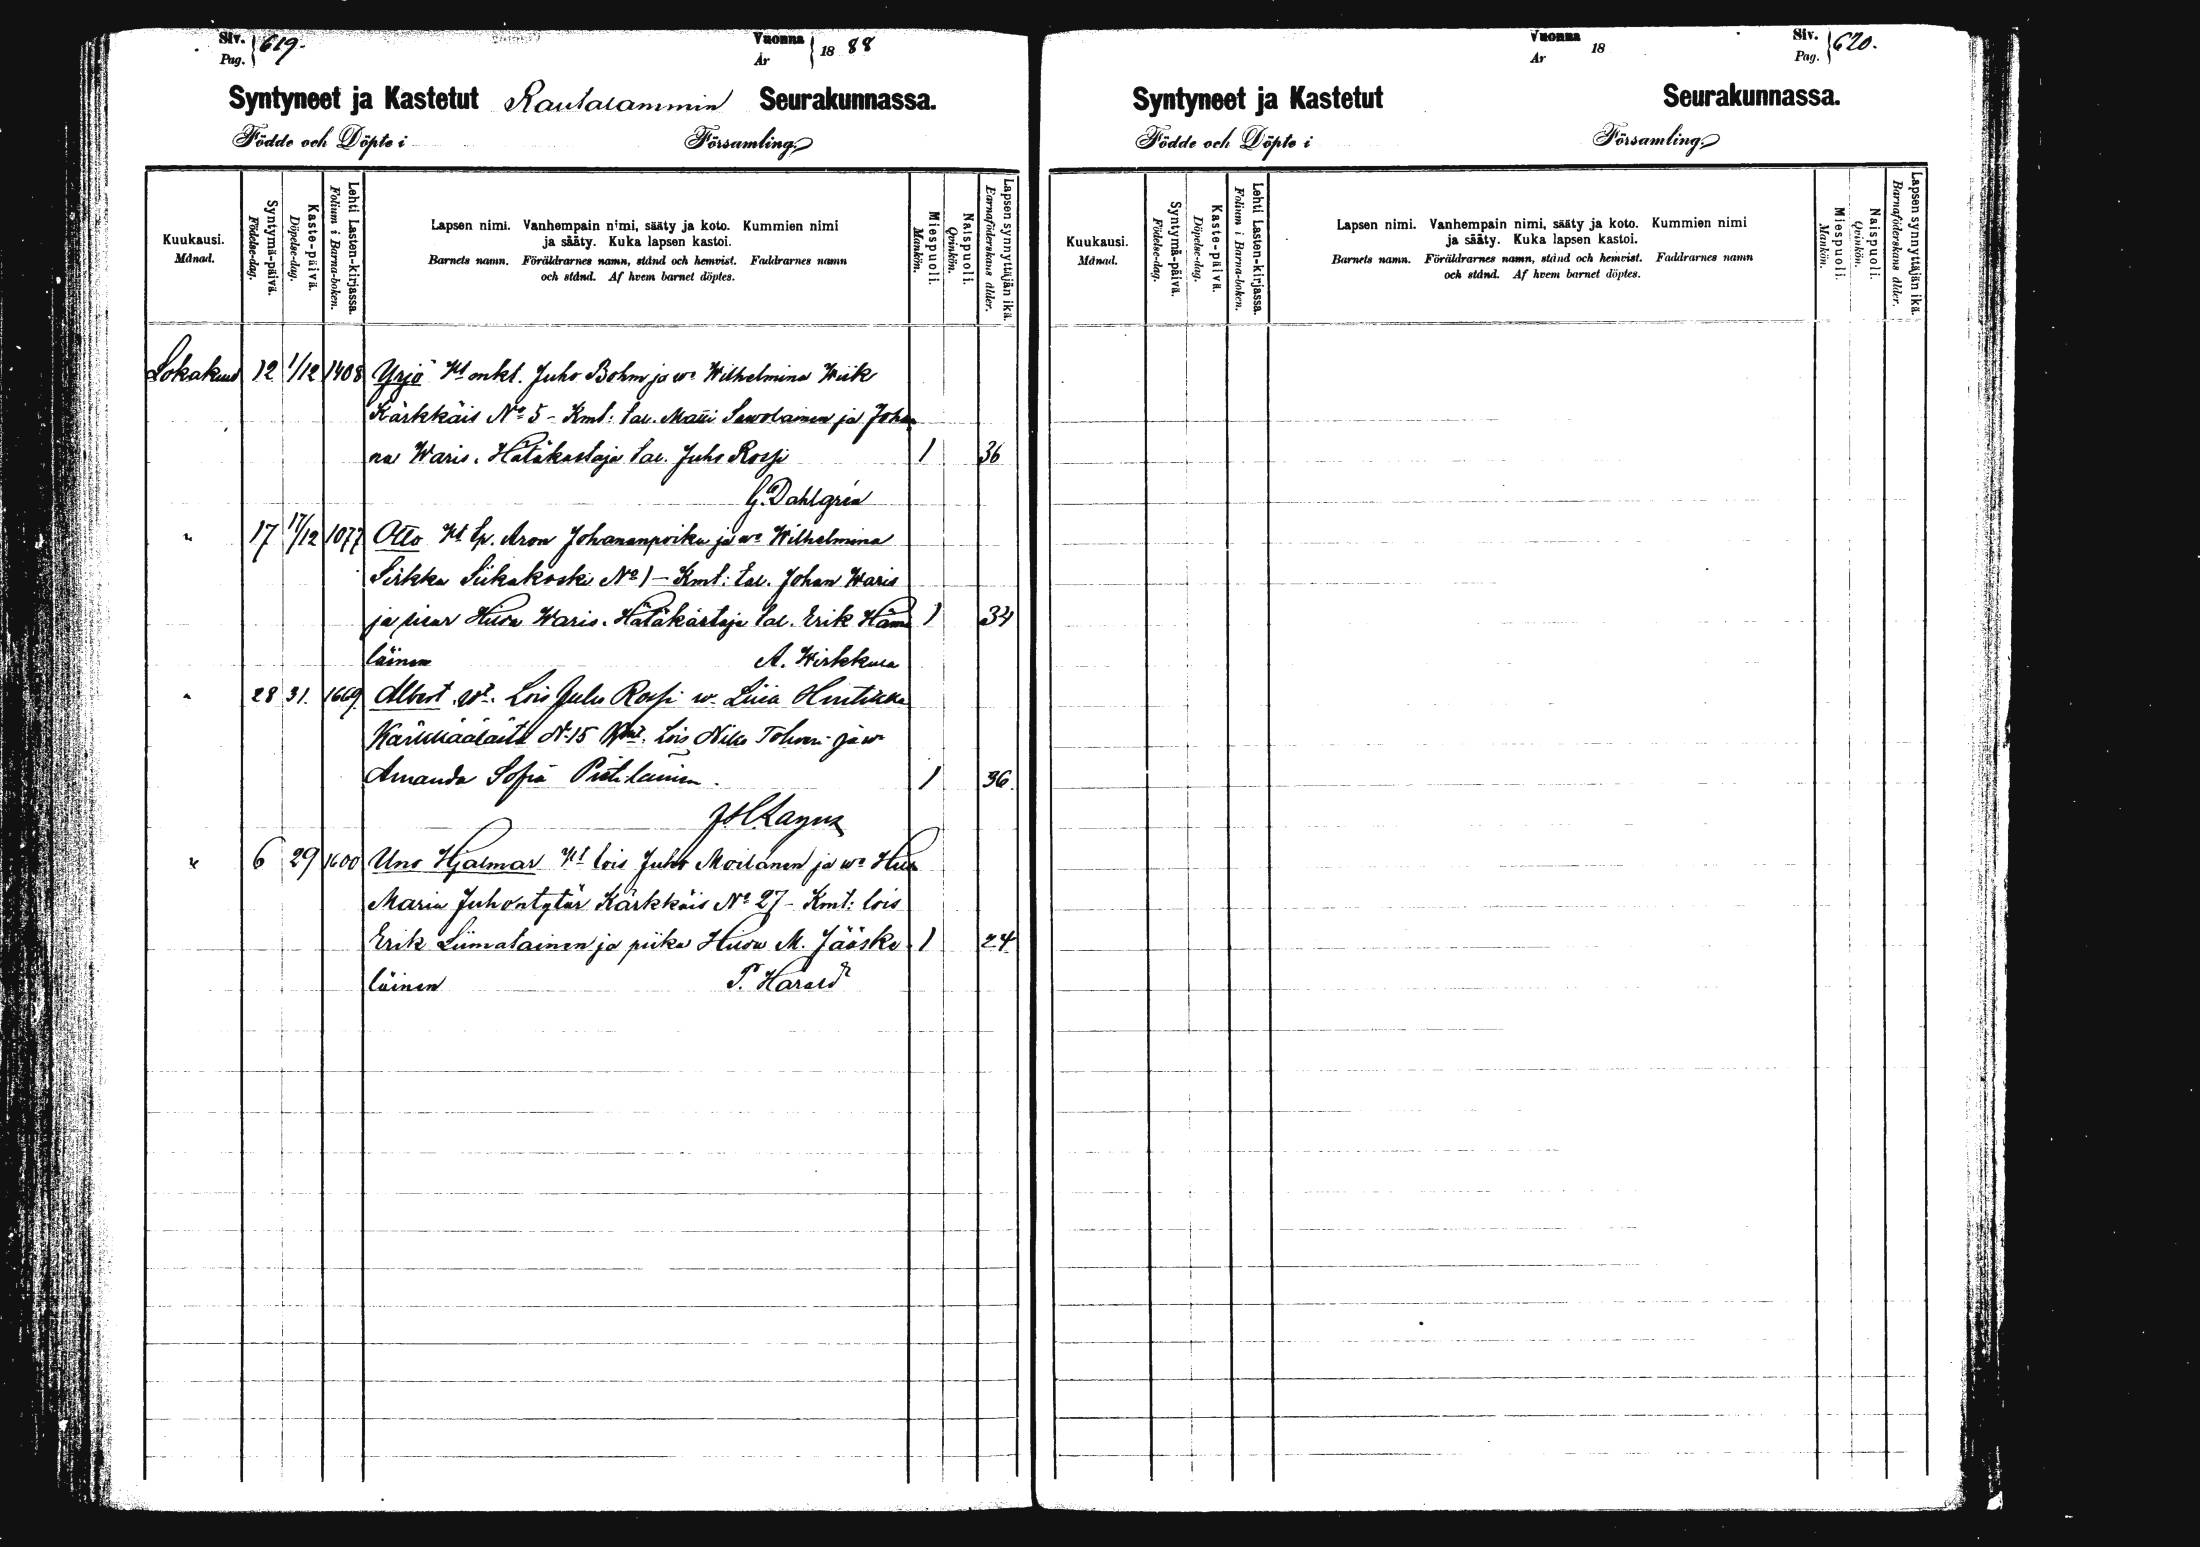 Siv. Pag. 619.
Vuonna År 1888
Syntyneet ja Kastetut Rautalammin Seurakunnassa.
Födde och Döpte i Församling.
Kuukausi. Månad.
Syntymä-päivä. Födelse-dag.
Kaste-päivä. Döpelse-dag.
Lehti Lasten-kirjassa. Folium i Barna-boken.
Lapsen nimi. Vanhempain nimi, sääty ja koto. Kummien nimi
ja sääty. Kuka lapsen kastoi.
Barnets namn. Föräldrarnes namn, stånd och hemvist. Faddrarnes namn
och stånd. Af hvem barnet döptes.
Miespuoli. Mankön.
Naispuoli. Qvinkön.
Lapsen synnyttäjän ikä. Barnaföderskans ålder.
Lokakuu 12 1/12 1408 Yrjö Wt mkt. Juho Bohm ja wo Wilhelmina Wiik
Kärkkäis No 5 - Kmt: tal. Matti Sawolainen ja Johan
na Waris. Hätäkastaja tal. Juho Rossi 1 36
G. Dahlgrén
" 17 17/12 1077 Otto Wt Aron Johananpoika ja wo Wilhelmina
Sirkka Siikakoski No 1 - Kmt: tal. Johan Waris
ja Hilda Waris. Hätäkastaja tal. Erik Hämä 1 34
läinen A. Wirkkula
" 28 31. 1669. Albert Wt. Lois Julus Rossi w. Liisa Hintikka
No 15 Kmt. Lois Nilo Tohveri ja wo
Amanda Sofia Pietiläinen. 1 36.
" 6 29 1600 Uno Hjalmar Wt lois Juho Moilanen ja wo
Maria Juhontytär Kärkkäis No 27 - Kmt: lois
Erik Liimatainen ja piika Hilda M. Jääske 1 24
läinen T. Harald
Vuonna År 18
Siv. Pag. 620.
Syntyneet ja Kastetut Seurakunnassa.
Födde och Döpte i Församling.
Kuukausi. Månad.
Syntymä-päivä. Födelse-dag.
Kaste-päivä. Döpelse-dag.
Lehti Lasten-kirjassa. Folium i Barna-boken.
Lapsen nimi. Vanhempain nimi, sääty ja koto. Kummien nimi
ja sääty. Kuka lapsen kastoi.
Barnets namn. Föräldrarnes namn, stånd och hemvist. Faddrarnes namn
och stånd. Af hvem barnet döptes.
Miespuoli. Mankön.
Naispuoli. Qvinkön.
Lapsen synnyttäjän ikä. Barnaföderskans ålder.